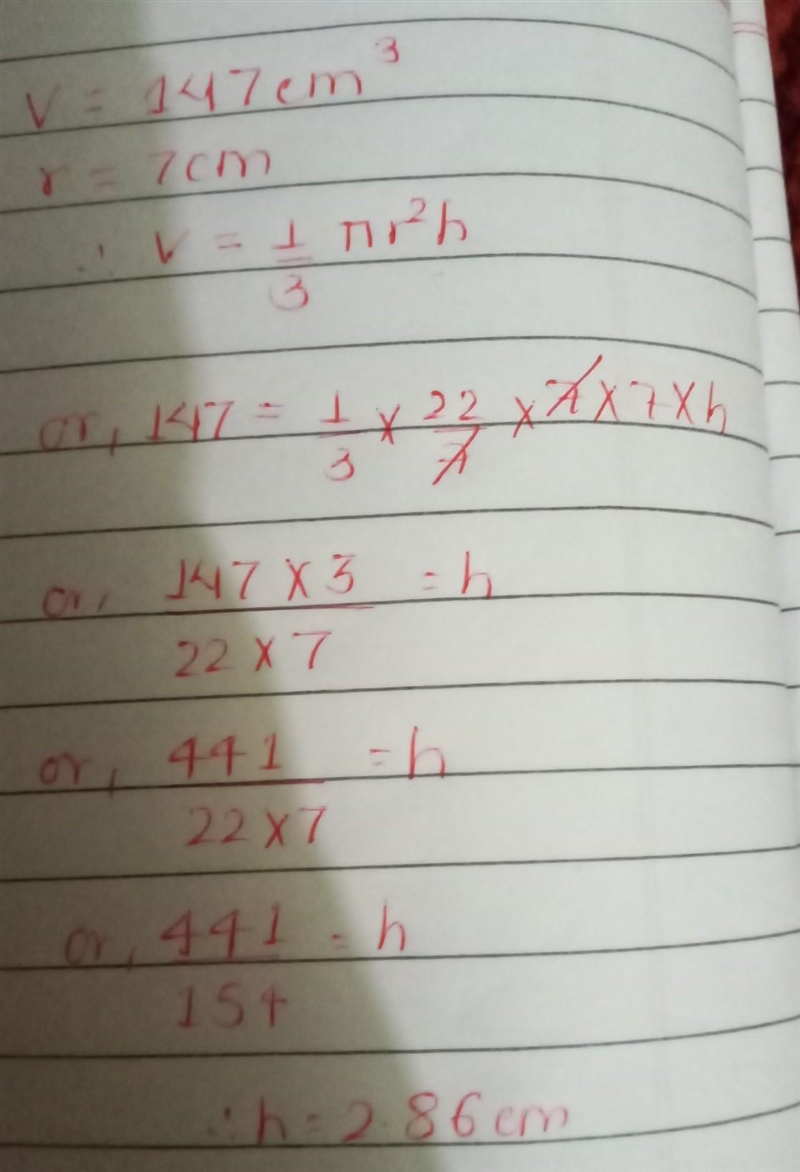 V = 147cm³
r = 7cm
∴ V = 1/3 πr²h
or, 147 = 1/3 × 22/7 × 7 × 7 × h
or, 147 × 3 / 22 × 7 = h
or, 441 / 22 × 7 = h
or, 441 / 154 = h
∴ h = 2.86 cm